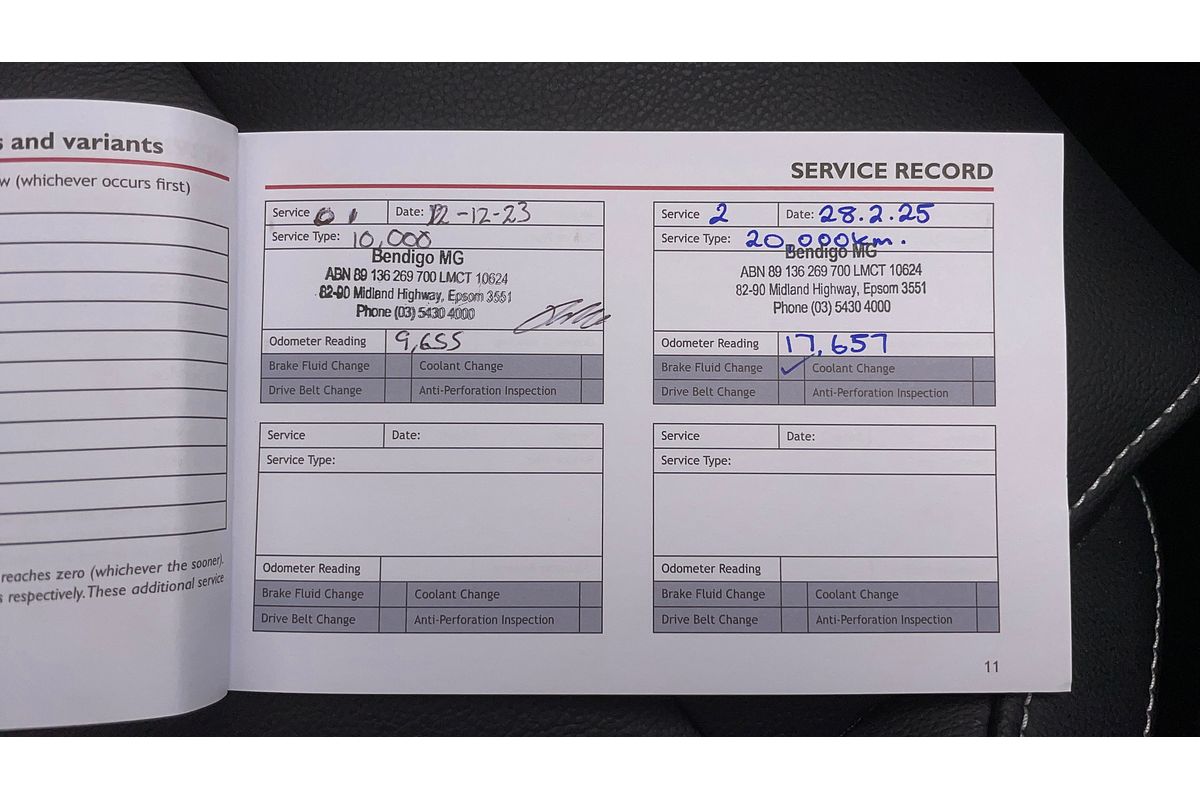 s and variants
w (whichever occurs first)
reaches zero (whichever the sooner).
s respectively. These additional service
SERVICE RECORD
Service 01 Date: 12-12-23
Service Type: 10,000
Bendigo MG
ABN 89 136 269 700 LMCT 10624
82-90 Midland Highway, Epsom 3551
Phone (03) 5430 4000
Odometer Reading 9,655
Brake Fluid Change Coolant Change
Drive Belt Change Anti-Perforation Inspection
Service 2 Date: 28.2.25
Service Type: 20,000km.
Bendigo MG
ABN 89 136 269 700 LMCT 10624
82-90 Midland Highway, Epsom 3551
Phone (03) 5430 4000
Odometer Reading 17,657
Brake Fluid Change ✓ Coolant Change
Drive Belt Change Anti-Perforation Inspection
Service Date:
Service Type:
Odometer Reading
Brake Fluid Change Coolant Change
Drive Belt Change Anti-Perforation Inspection
Service Date:
Service Type:
Odometer Reading
Brake Fluid Change Coolant Change
Drive Belt Change Anti-Perforation Inspection
11